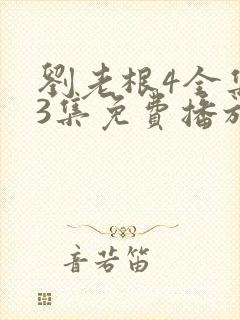 劉老根4全集
3集免費播放
音若笛